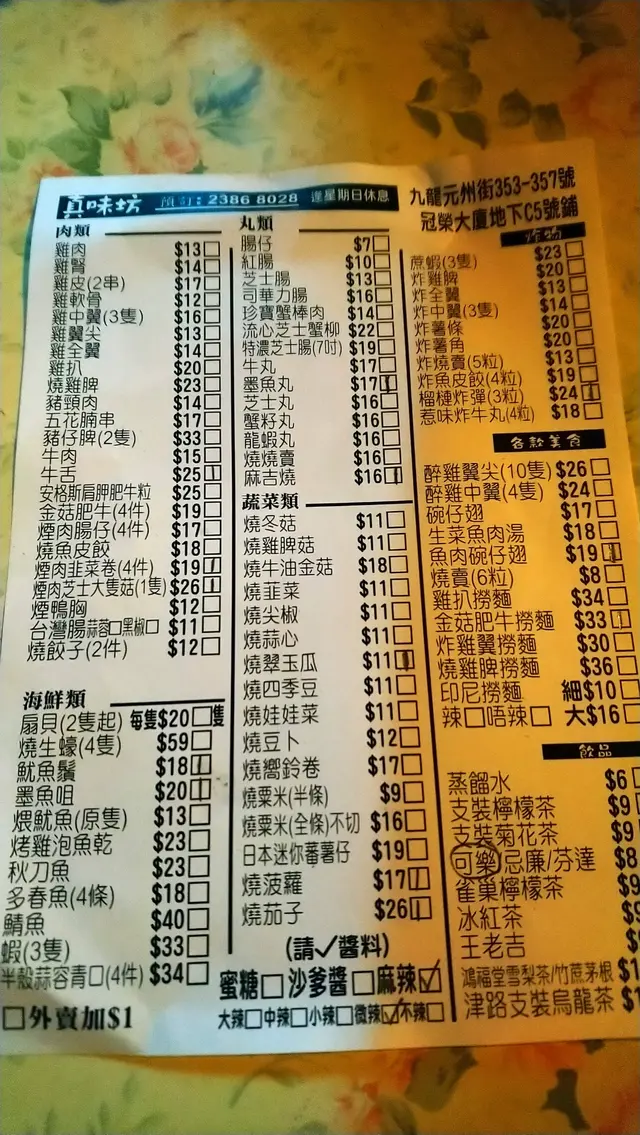 真味坊 預訂: 2386 8028 逢星期日休息
九龍元州街353-357號
冠榮大廈地下C5號鋪
肉類
雞肉 $13
雞腎 $14
雞皮(2串) $17
雞軟骨 $12
雞中翼(3隻) $16
雞翼尖 $13
雞全翼 $14
雞扒 $20
燒雞脾 $23
豬頸肉 $14
五花腩串 $17
豬仔脾(2隻) $33
牛肉 $15
牛舌 $25
安格斯肩胛肥牛粒 $25
金菇肥牛(4件) $19
煙肉腸仔(4件) $17
燒魚皮餃 $18
煙肉韭菜卷(4件) $19
煙肉芝士大隻菇(1隻) $26
煙鴨胸 $12
台灣腸蒜蓉□黑椒□ $11
燒餃子(2件) $12
海鮮類
扇貝(2隻起) 每隻$20□隻
燒生蠔(4隻) $59
魷魚鬚 $18
墨魚咀 $20
煨魷魚(原隻) $13
烤雞泡魚乾 $23
秋刀魚 $23
多春魚(4條) $18
鯖魚 $40
蝦(3隻) $33
半殼蒜容青口(4件) $34
□外賣加$1
丸類
腸仔 $7
紅腸 $10
芝士腸 $13
司華力腸 $16
珍寶蟹棒肉 $14
流心芝士蟹柳 $22
特濃芝士腸(7吋) $19
牛丸 $17
墨魚丸 $17
芝士丸 $16
蟹籽丸 $16
龍蝦丸 $16
燒燒賣 $16
麻吉燒 $16
蔬菜類
燒冬菇 $11
燒雞脾菇 $11
燒牛油金菇 $18
燒韮菜 $11
燒尖椒 $11
燒蒜心 $11
燒翠玉瓜 $11
燒四季豆 $11
燒娃娃菜 $11
燒豆卜 $12
燒嚮鈴卷 $17
燒粟米(半條) $9
燒粟米(全條)不切 $16
日本迷你蕃薯仔 $19
燒菠蘿 $17
燒茄子 $26
(請✓醬料)
蜜糖□沙爹醬□麻辣☑
大辣□中辣□小辣□微辣☑不辣□
炸物
蔗蝦(3隻) $23
炸雞脾 $20
炸全翼 $13
炸中翼(3隻) $14
炸薯條 $20
炸薯角 $20
炸燒賣(5粒) $13
炸魚皮餃(4粒) $19
榴槤炸彈(3粒) $24
惹味炸牛丸(4粒) $18
各款美食
醉雞翼尖(10隻) $26
醉雞中翼(4隻) $24
碗仔翅 $17
生菜魚肉湯 $18
魚肉碗仔翅 $19
燒賣(6粒) $8
雞扒撈麵 $34
金菇肥牛撈麵 $33
炸雞翼撈麵 $30
燒雞脾撈麵 $36
印尼撈麵 細$10
辣□唔辣□ 大$16
飲品
蒸餾水 $6
支裝檸檬茶 $9
支裝菊花茶 $9
可樂/忌廉/芬達 $8
雀巢檸檬茶 $9
冰紅茶
王老吉
鴻福堂雪梨茶/竹蔗茅根
津路支裝烏龍茶